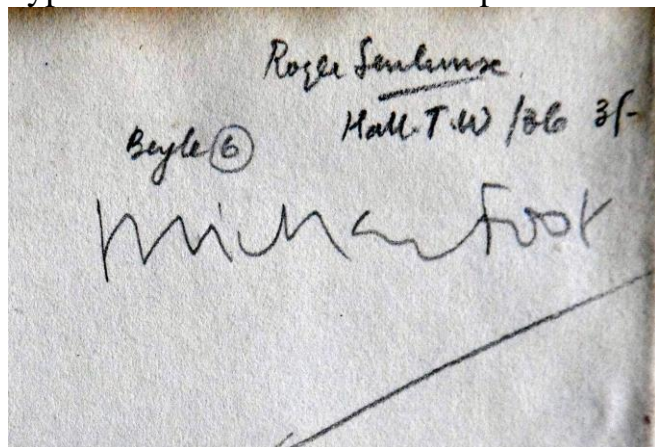 Roger Senhouse
Hall. T.W /36 3/-
Beyle 6
Michael Foot